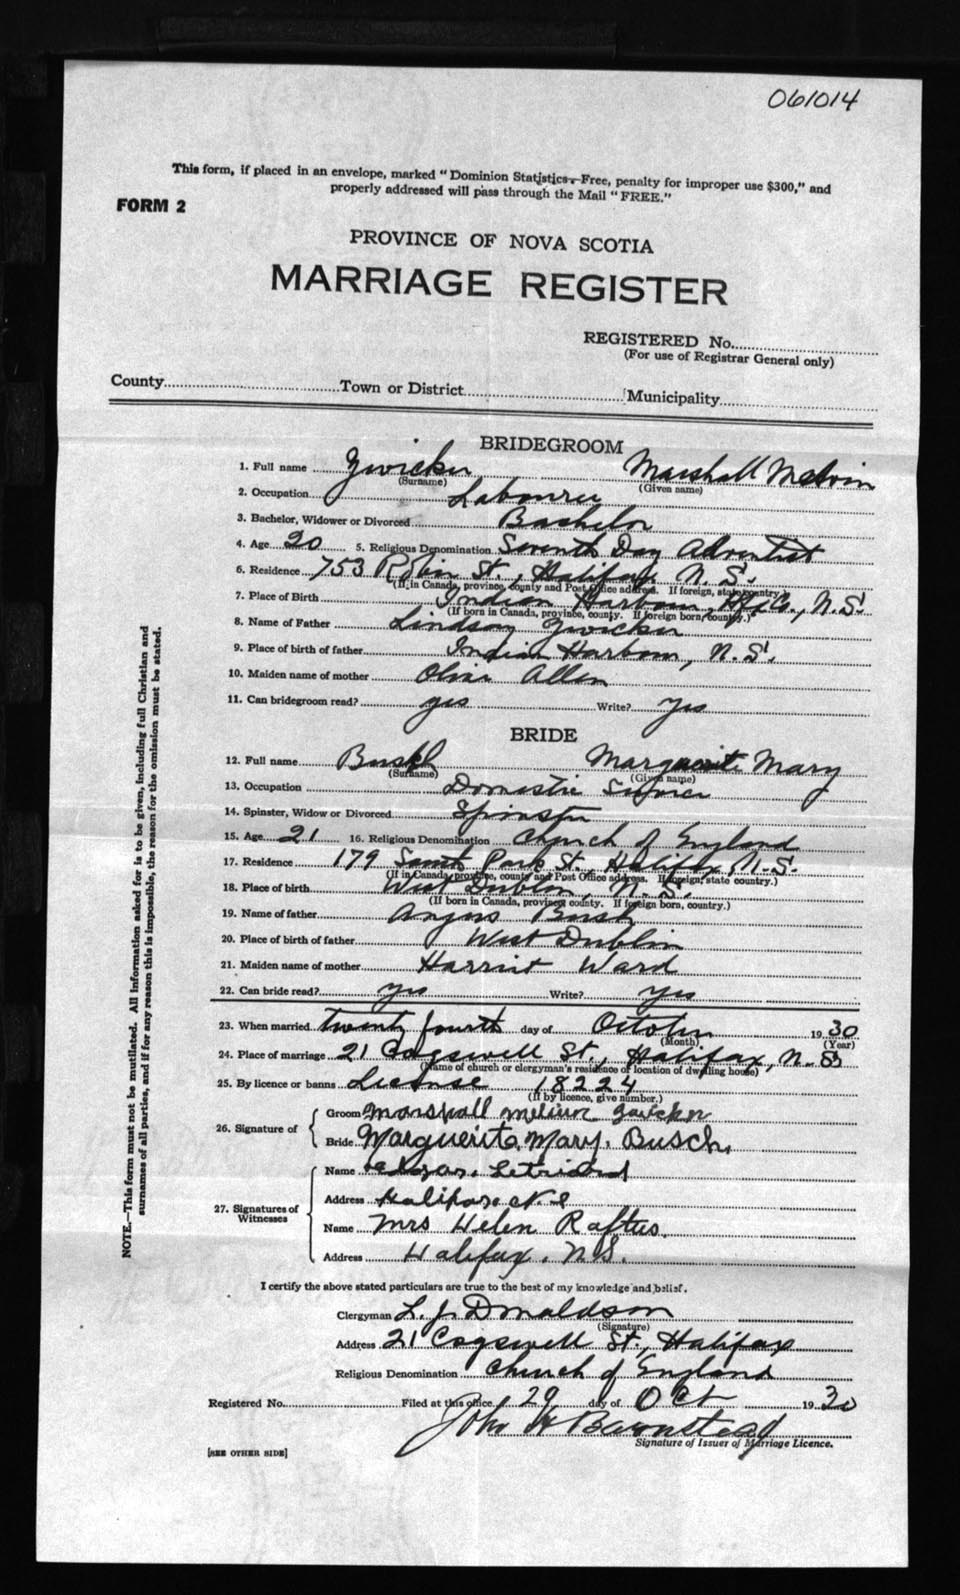 061014
This form, if placed in an envelope, marked "Dominion Statistics—Free, penalty for improper use $300," and
properly addressed will pass through the Mail "FREE."
FORM 2
PROVINCE OF NOVA SCOTIA
MARRIAGE REGISTER
REGISTERED No.
(For use of Registrar General only)
County Town or District Municipality
BRIDEGROOM
1. Full name Zwicker Marshall Melvin
(Surname) (Given name)
2. Occupation Labourer
3. Bachelor, Widower or Divorced Bachelor
4. Age 20 5. Religious Denomination Seventh Day Adventist
6. Residence 753 Robie St., Halifax N.S.
(If in Canada, province, county and Post Office address. If foreign, state country.)
7. Place of Birth Indian Harbour, Hfx Co., N.S.
(If born in Canada, province, county. If foreign born, country.)
8. Name of Father Lindsay Zwicker
9. Place of birth of father Indian Harbour, N.S.
10. Maiden name of mother Allen
11. Can bridegroom read? yes Write? yes
BRIDE
12. Full name Marguerite Mary
(Surname) (Given name)
13. Occupation Domestic
14. Spinster, Widow or Divorced Spinster
15. Age 21 16. Religious Denomination Church of England
17. Residence 179 South Park St., Halifax N.S.
(If in Canada, province, county and Post Office address. If foreign, state country.)
18. Place of birth West Dublin, N.S.
(If born in Canada, province county. If foreign born, country.)
19. Name of father Angus
20. Place of birth of father West Dublin
21. Maiden name of mother Harriet Ward
22. Can bride read? yes Write? yes
23. When married twenty fourth day of October 1930
(Month) (Year)
24. Place of marriage 21 Cogswell St., Halifax, N.S.
(Name of church or clergyman's residence or location of dwelling house)
25. By licence or banns License 18224
(If by licence, give number.)
26. Signature of
Groom Marshall Melvin Zwicker
Bride Marguerite Mary. Busch.
27. Signatures of Witnesses
Name
Address Halifax N.S
Name Mrs Helen Raftus.
Address Halifax. N.S.
I certify the above stated particulars are true to the best of my knowledge and belief.
Clergyman L. J. Donaldson
(Signature)
Address 21 Cogswell St., Halifax
Religious Denomination Church of England
Registered No. Filed at this office 29 day of Oct 1930
John H Barnstead
Signature of Issuer of Marriage Licence.
[SEE OTHER SIDE]
NOTE.—This form must not be mutilated. All information asked for is to be given, including full Christian and
surnames of all parties, and if for any reason this is impossible, the reason for the omission must be stated.